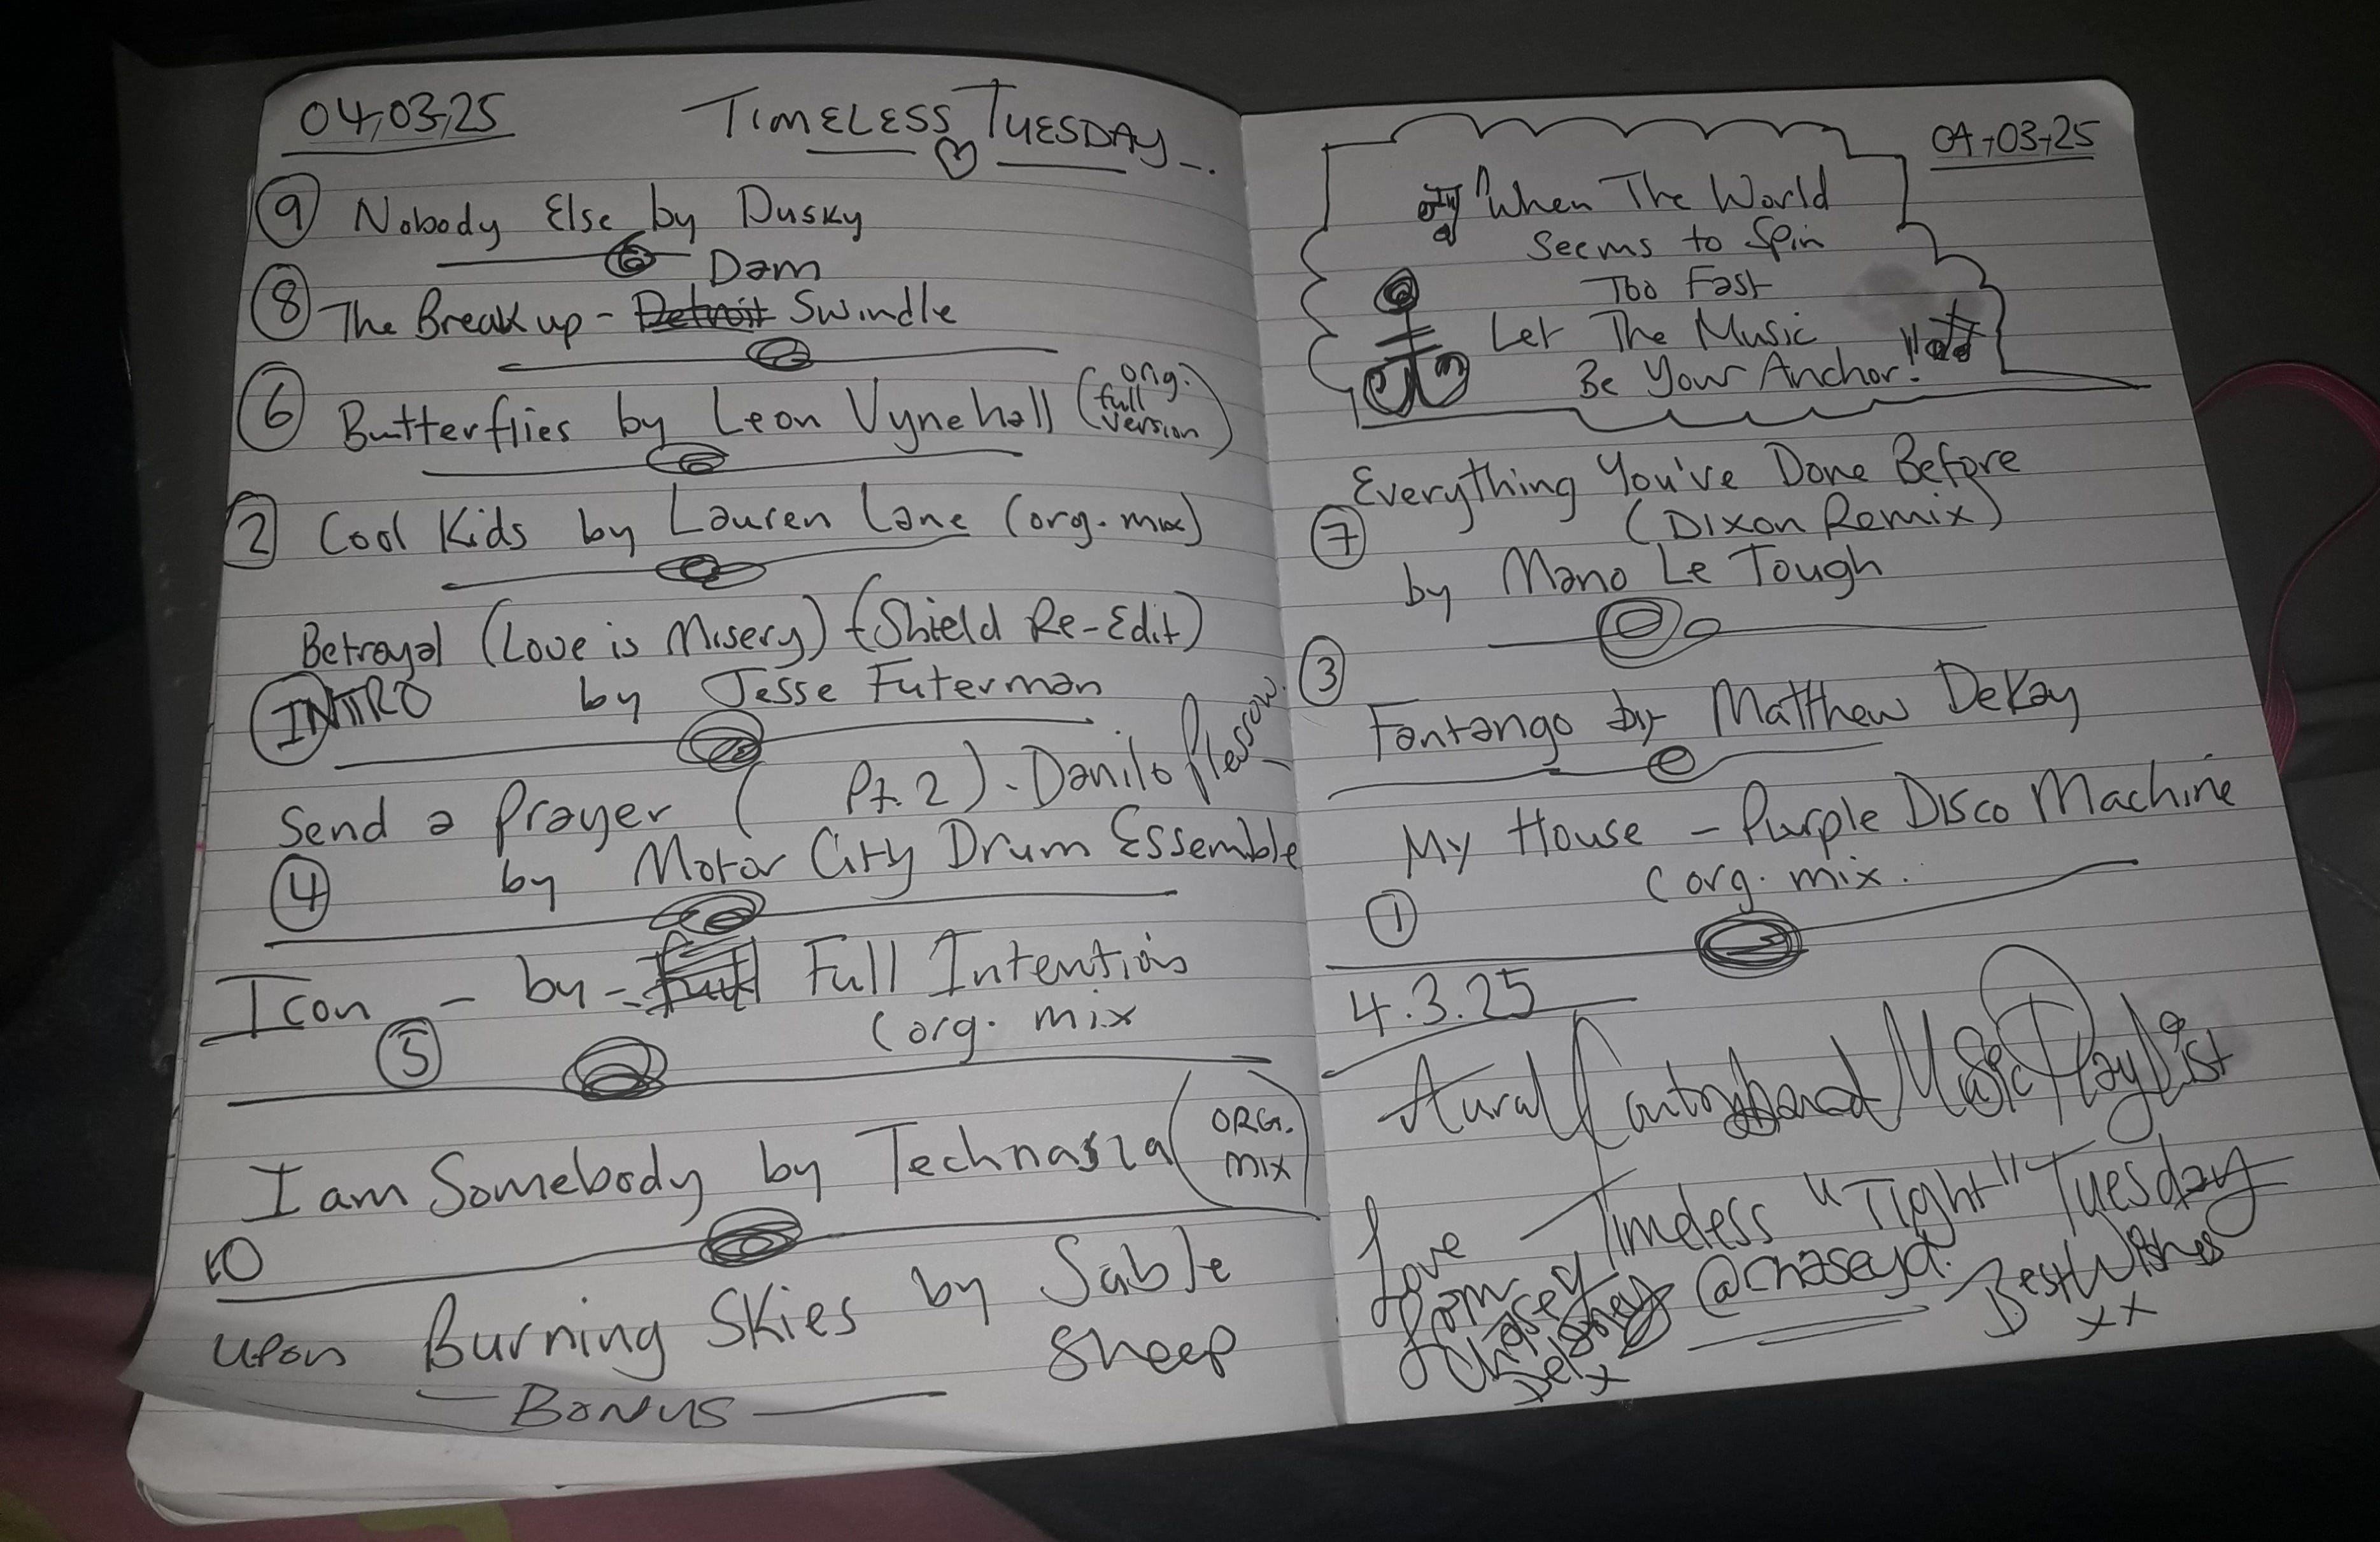 04,03,25
TIMELESS TUESDAY
9 Nobody Else by Dusky
Dam
8 The Break up - Detroit Swindle
6 Butterflies by Leon Vynehall (orig. full version)
2 Cool Kids by Lauren Lane (org. mix)
Betrayal (Love is Misery) (Shield Re-Edit)
INTRO by Jesse Futerman
Send a Prayer ( Pt. 2) - Danilo Plessow
4 by Motor City Drum Essemble
Icon - by - Full Intention
5 (org. mix
I am Somebody by Technasia (ORG. MIX)
10
Upon Burning Skies by Sable
Sheep
BONUS
04-03-25
"When The World
Seems to Spin
Too Fast
Let The Music
Be Your Anchor!"
Everything You've Done Before
(DIXON Remix)
7
by Mano Le Tough
3
Fantango by Matthew DeKay
My House - Purple Disco Machine
(org. mix.
1
4.3.25
Aural Contraband Music PlayList
Timeless "Tight" Tuesday
Love
from
Chasey
Delaney
x
@chaseyd.
Best Wishes
xx